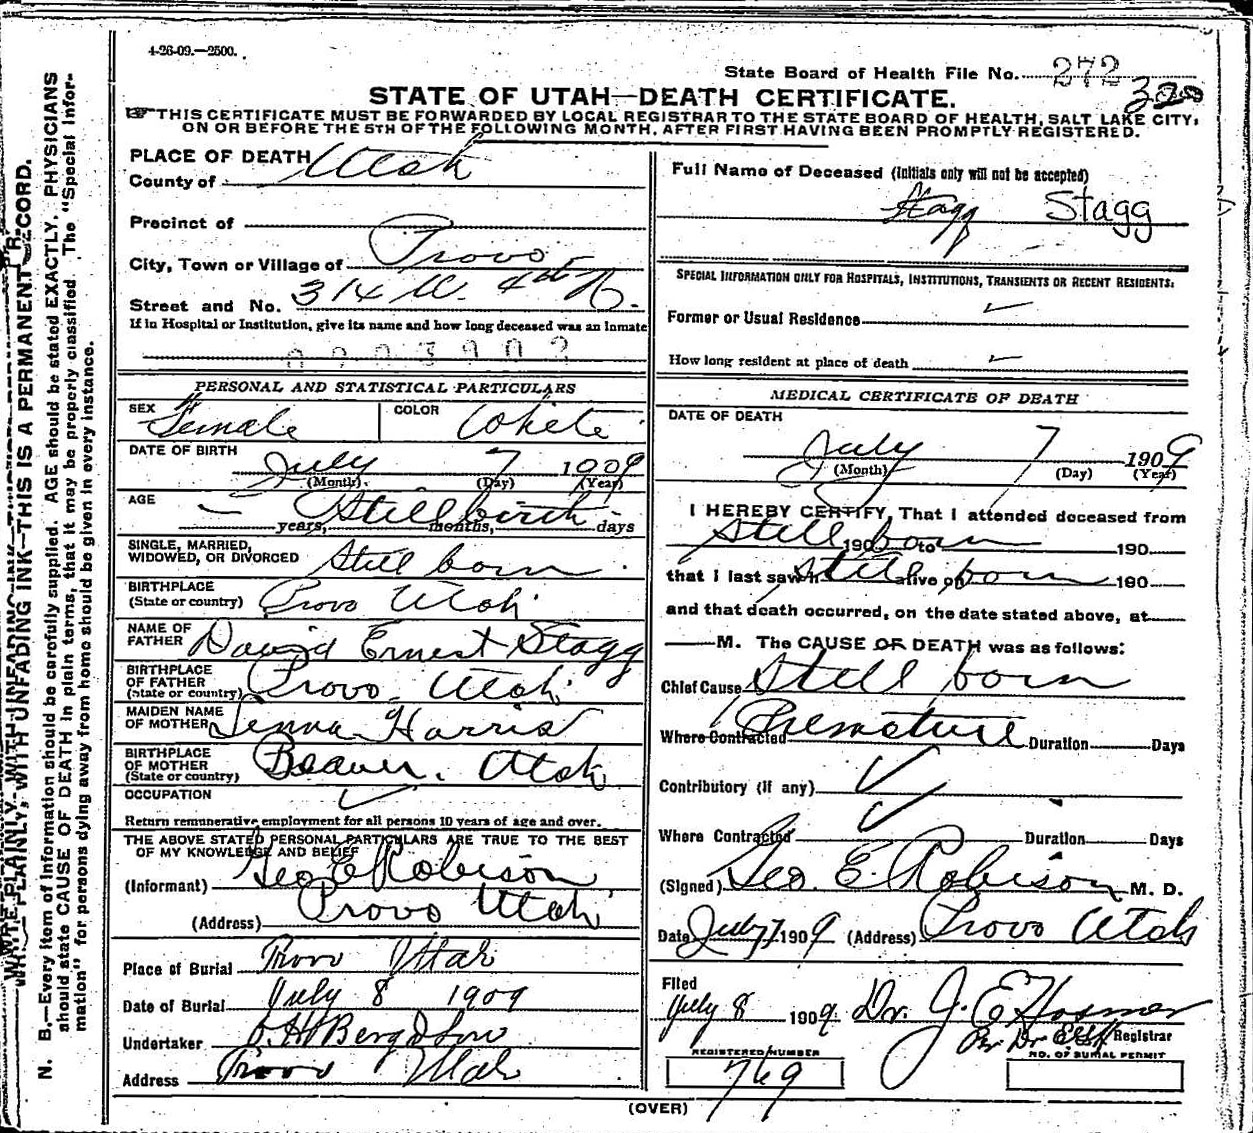 4-26-09.—2500.
State Board of Health File No. 272
320
STATE OF UTAH—DEATH CERTIFICATE.
THIS CERTIFICATE MUST BE FORWARDED BY LOCAL REGISTRAR TO THE STATE BOARD OF HEALTH, SALT LAKE CITY,
ON OR BEFORE THE 5TH OF THE FOLLOWING MONTH, AFTER FIRST HAVING BEEN PROMPTLY REGISTERED.
PLACE OF DEATH
County of Utah
Precinct of
City, Town or Village of Provo
Street and No. 314 W. 4th N.
If in Hospital or Institution, give its name and how long deceased was an inmate
PERSONAL AND STATISTICAL PARTICULARS
SEX Female COLOR White
DATE OF BIRTH July 7 1909
(Month) (Day) (Year)
AGE — Stillbirth
years, months, days
SINGLE, MARRIED,
WIDOWED, OR DIVORCED Still born
BIRTHPLACE
(State or country) Provo Utah
NAME OF
FATHER David Ernest Stagg
BIRTHPLACE
OF FATHER
(State or country) Provo, Utah
MAIDEN NAME
OF MOTHER Lenna Harris
BIRTHPLACE
OF MOTHER
(State or country) Beaver, Utah
OCCUPATION ✓
Return remunerative employment for all persons 10 years of age and over.
THE ABOVE STATED PERSONAL PARTICULARS ARE TRUE TO THE BEST
OF MY KNOWLEDGE AND BELIEF
(Informant) Geo E Robison
(Address) Provo Utah
Place of Burial Provo Utah
Date of Burial July 8 1909
Undertaker O. H. Berg & Son
Address Provo Utah
Full Name of Deceased (Initials only will not be accepted)
Stagg Stagg
SPECIAL INFORMATION ONLY FOR HOSPITALS, INSTITUTIONS, TRANSIENTS OR RECENT RESIDENTS.
Former or Usual Residence ✓
How long resident at place of death ✓
MEDICAL CERTIFICATE OF DEATH
DATE OF DEATH
July 7 1909
(Month) (Day) (Year)
I HEREBY CERTIFY, That I attended deceased from
Still 190 born to 190
that I last saw h Still alive on born 190
and that death occurred, on the date stated above, at
M. The CAUSE OF DEATH was as follows:
Chief Cause Still born
Where Contracted Premature Duration Days
Contributory (if any) ✓
Where Contracted ✓ Duration Days
(Signed) Geo. E. Robison M. D.
Date July 7 1909 (Address) Provo Utah
Filed
July 8 1909. Dr. J. E. Hosmer
Registrar
REGISTERED NUMBER
769
NO. OF BURIAL PERMIT
(OVER)
WRITE PLAINLY, WITH UNFADING INK—THIS IS A PERMANENT RECORD.
N. B.—Every item of information should be carefully supplied. AGE should be stated EXACTLY. PHYSICIANS
should state CAUSE OF DEATH in plain terms, that it may be properly classified. The "Special Infor-
mation" for persons dying away from home should be given in every instance.